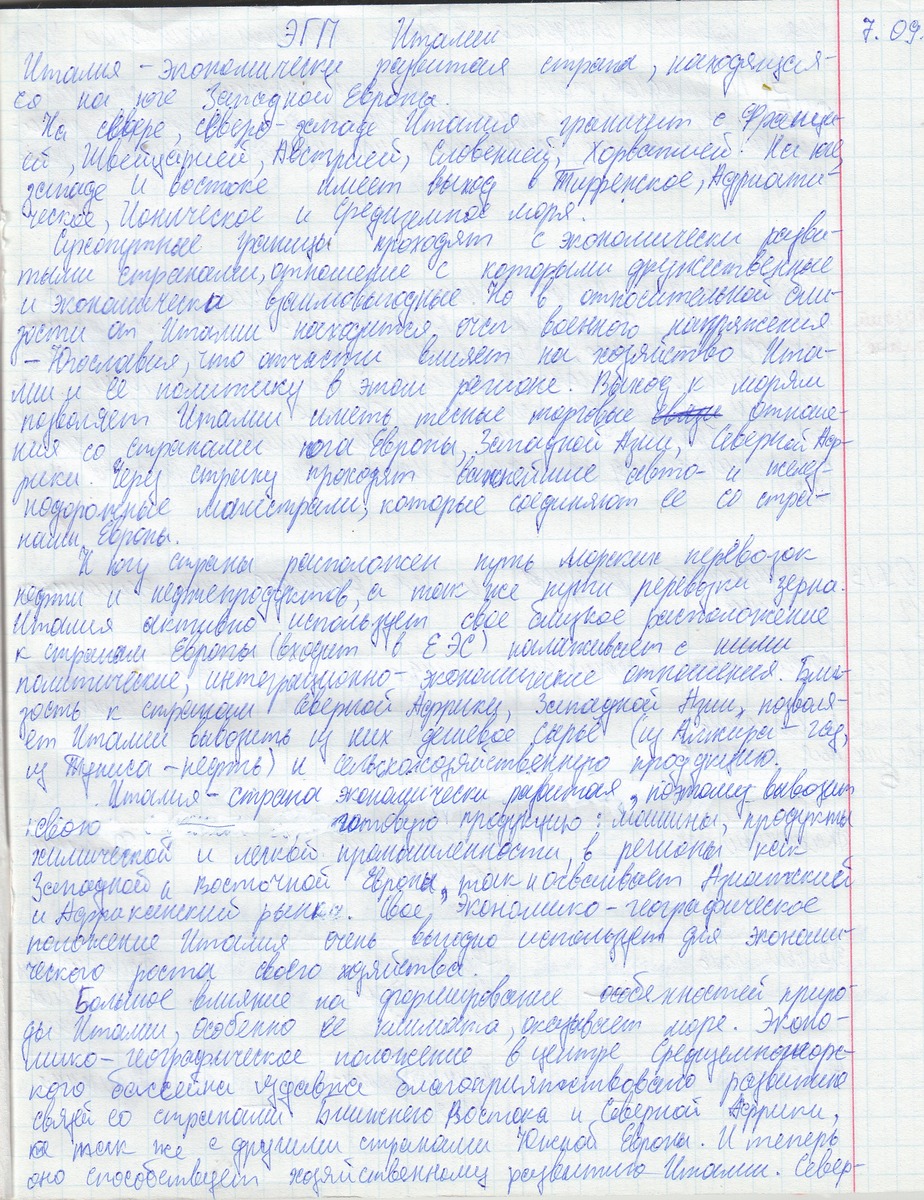 ЭГП Италии 7.09.
Италия - экономически развитая страна, находящая-
ся на юге Западной Европы.
На севере, северо-западе Италия граничит с Франци-
ей, Швейцарией, Австрией, Словенией, Хорватией. На юге,
западе и востоке имеет выход в Тирренское, Адриати-
ческое, Ионическое и Средиземное моря.
Сухопутные границы проходят с экономически разви-
тыми странами, отношение с которыми дружественные
и экономически взаимовыгодные. Но в относительной бли-
зости от Италии находится очаг военного напряжения
- Югославия, что отчасти влияет на хозяйство Ита-
лии и её политику в этом регионе. Выход к морям
позволяет Италии иметь тесные торговые связи отноше-
ния со странами юга Европы, Западной Азии, Северной Аф-
рики. Через страну проходят важнейшие авто- и желез-
нодорожные магистрали, которые соединяют её со стра-
нами Европы.
К югу страны расположен путь морских перевозок
нефти и нефтепродуктов, а так же пути перевозки зерна.
Италия активно использует свое близкое расположение
к странам Европы (входит в ЕЭС) налаживает с ними
политические, интеграционно-экономические отношения. Бли-
зость к странам Северной Аффрики, Западной Азии, позволя-
ет Италии вывозить из них дешевое сырьё (из Алжира - газ,
из Туниса - нефть) и сельскохозяйственную продукцию.
Италия - страна экономически развитая, поэтому вывозит
свою готовую продукцию: машины, продукты
химической и легкой промышленности, в регионы как
Западной и Восточной Европы, так и осваивает Азиатский
и Африканский рынки. Свое Экономико-географическое
положение Италия очень выгодно использует для экономи-
ческого роста своего хозяйства.
Большое влияние на формирование особенностей приро-
ды Италии, особенно её климата, оказывает море. Эконо-
мико-географическое положение в центре Средиземномор-
ского бассейна издавна благоприятствовало развитию
связей со странами Ближнего Востока и Северной Аффрики,
а так же с другими странами Южной Европы. И теперь
оно способствует хозяйственному развитию Италии. Север-